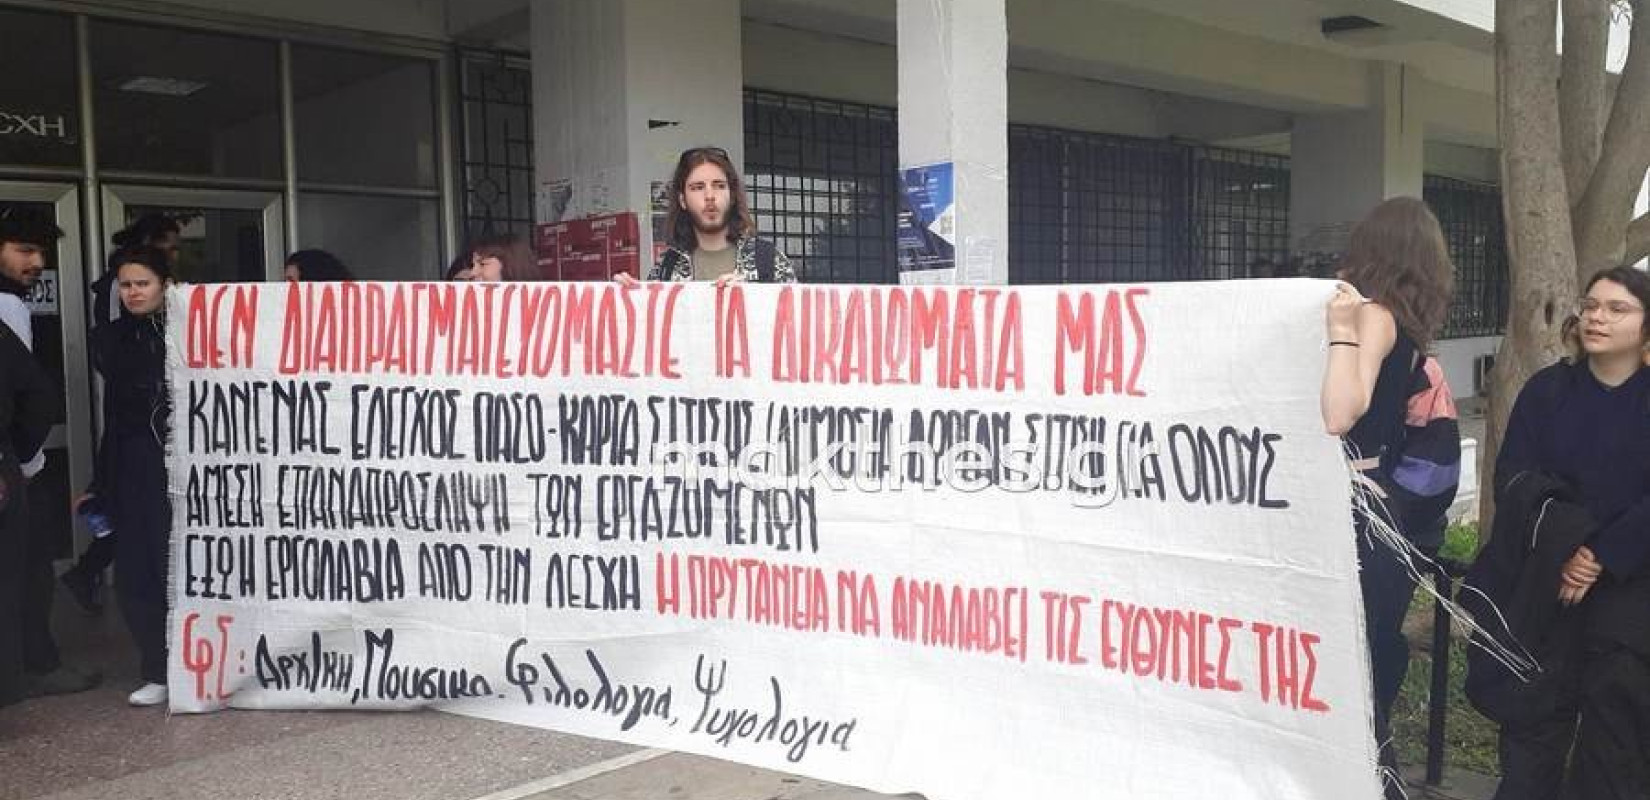 ΣΧΗ
ΔΕΝ ΔΙΑΠΡΑΓΜΑΤΕΥΟΜΑΣΤΕ ΤΑ ΔΙΚΑΙΩΜΑΤΑ ΜΑΣ
ΚΑΝΕΝΑΣ ΕΛΕΓΧΟΣ ΠΑΣΟ-ΚΑΡΤΑ ΣΙΤΙΣΗΣ / ΔΗΜΟΣΙΑ ΔΩΡΕΑΝ ΣΙΤΙΣΗ ΓΙΑ ΟΛΟΥΣ
makthes.gr
ΑΜΕΣΗ ΕΠΑΝΑΠΡΟΣΛΗΨΗ ΤΩΝ ΕΡΓΑΖΟΜΕΝΩΝ
ΕΞΩ Η ΕΡΓΟΛΑΒΙΑ ΑΠΟ ΤΗΝ ΛΕΣΧΗ Η ΠΡΥΤΑΝΕΙΑ ΝΑ ΑΝΑΛΑΒΕΙ ΤΙΣ ΕΥΘΥΝΕΣ ΤΗΣ
Φ.Σ: Αρχ/κη, Μουσικο. Φιλολογια, Ψυχολογια